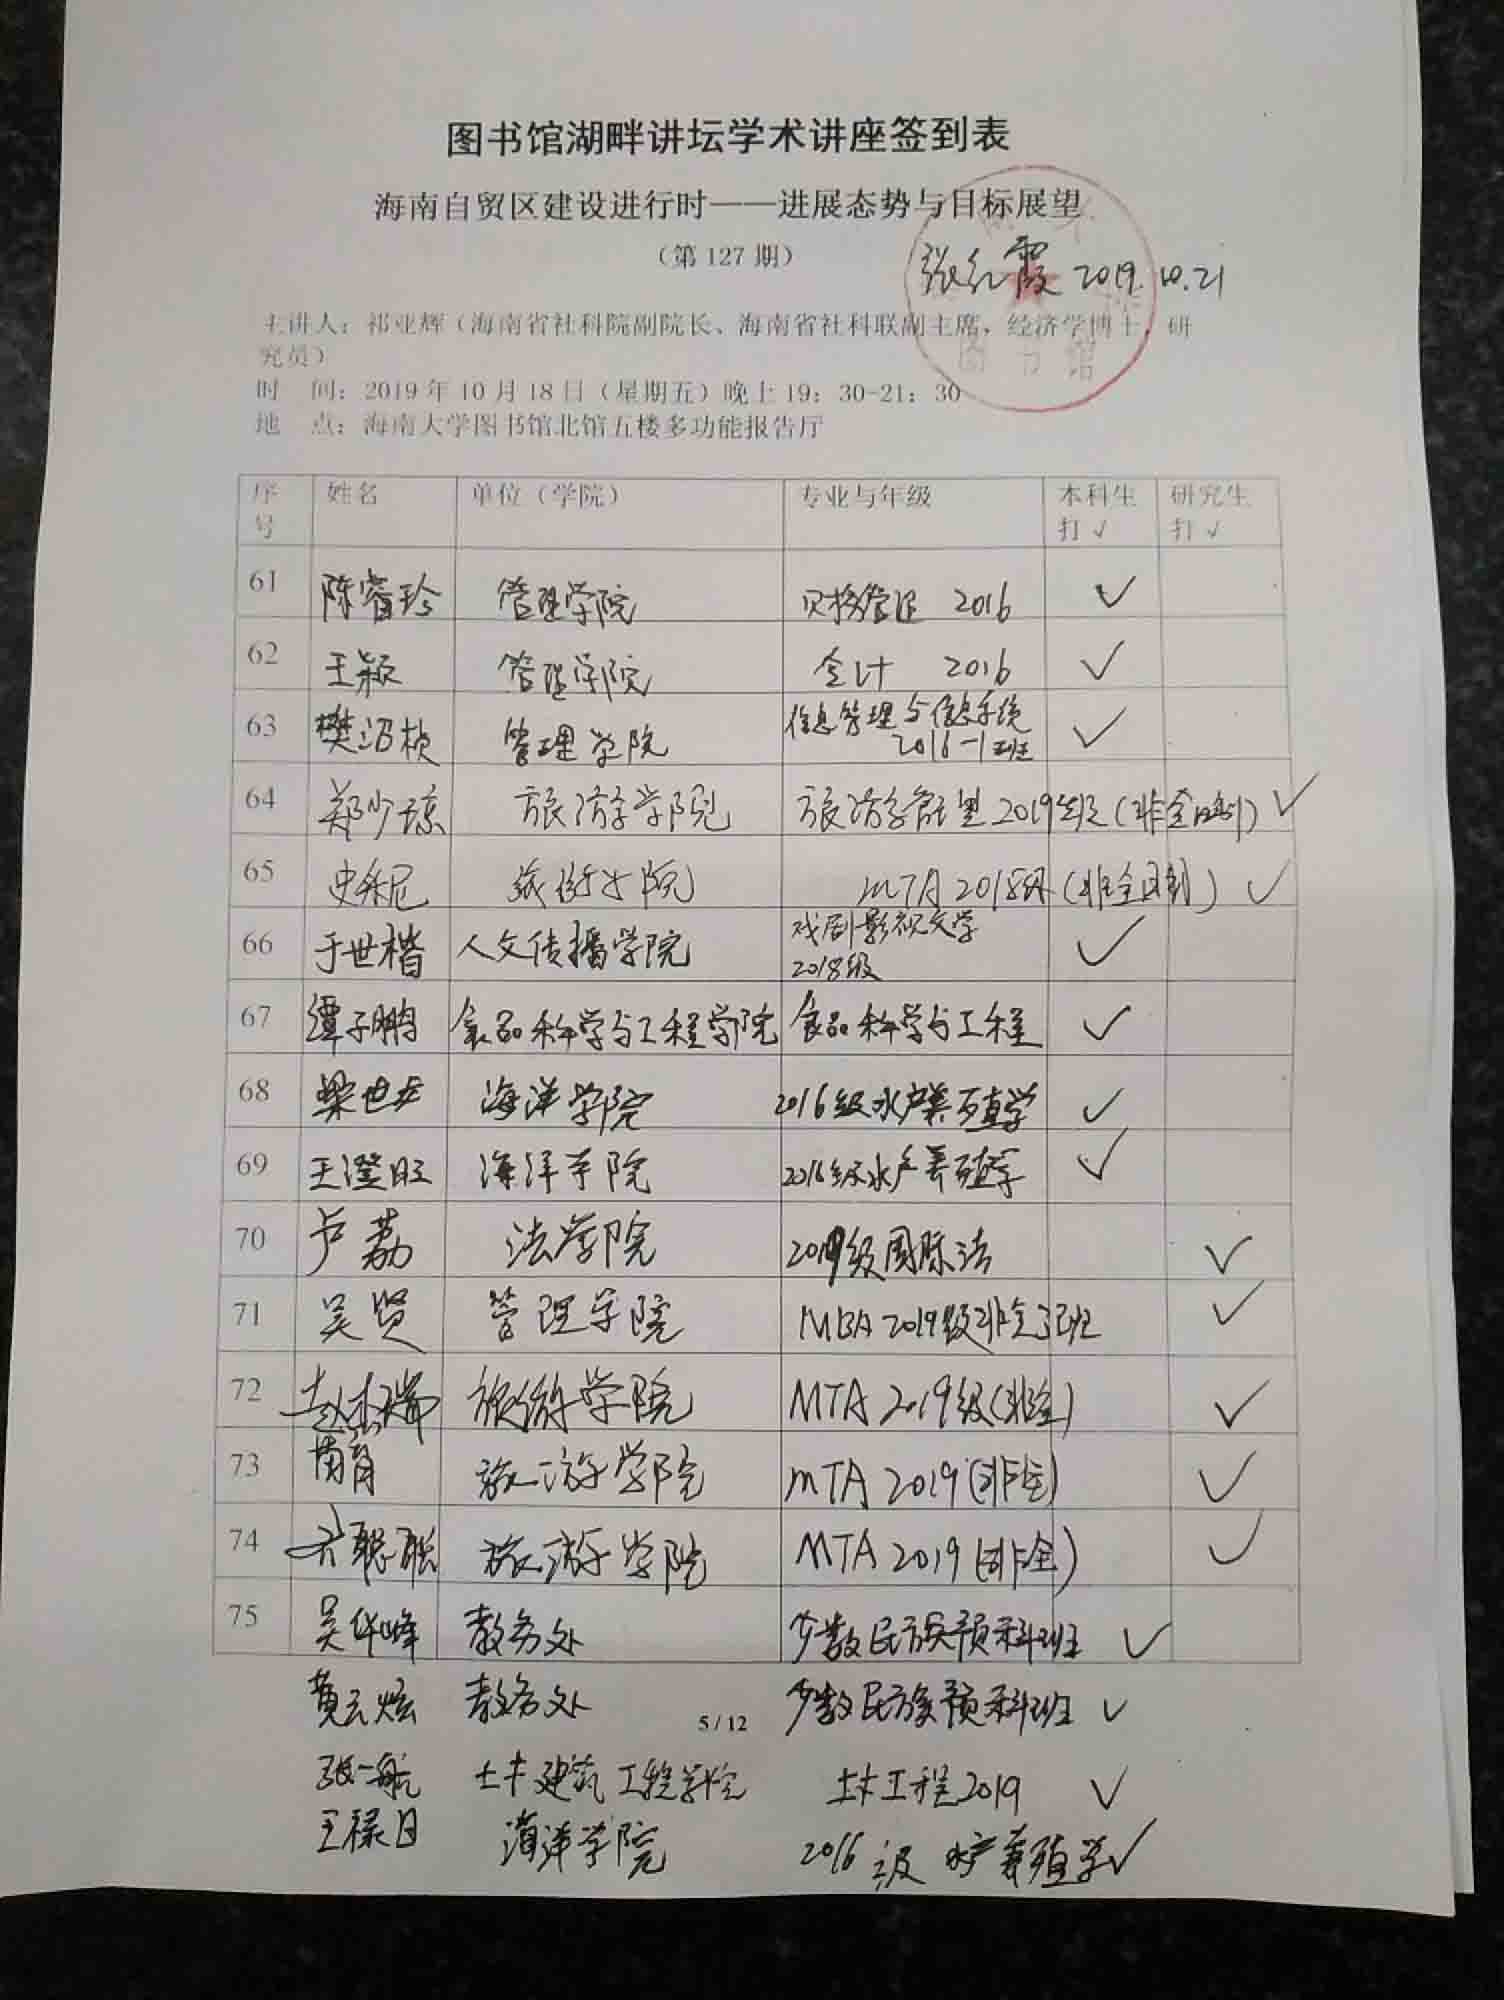 图书馆湖畔讲坛学术讲座签到表
海南自贸区建设进行时——进展态势与目标展望
（第 127 期）
张红霞 2019.10.21
主讲人：祁亚辉（海南省社科院副院长、海南省社科联副主席，经济学博士，研
究员）
图书馆
时 间：2019 年 10 月 18 日（星期五）晚上 19：30-21：30
地 点：海南大学图书馆北馆五楼多功能报告厅
序号 姓名 单位（学院） 专业与年级 本科生打√ 研究生打√
61 陈睿珍 管理学院 财务管理 2016 ✓
62 王颖 管理学院 会计 2016 ✓
63 樊沼桢 管理学院 信息管理与信息系统 2016-1班 ✓
64 郑少琼 旅游学院 旅游管理 2019级(非全日制) ✓
65 史 旅游学院 MTA 2018级(非全日制) ✓
66 于世楷 人文传播学院 戏剧影视文学 2018级 ✓
67 谭子鹏 食品科学与工程学院 食品科学与工程 ✓
68 梁世 海洋学院 2016级水产养殖学 ✓
69 王澄旺 海洋学院 2016级水产养殖学 ✓
70 卢荔 法学院 2019级国际法 ✓
71 吴贤 管理学院 MBA 2019级非全3班 ✓
72 赵杰瑞 旅游学院 MTA 2019级(非全) ✓
73 旅游学院 MTA 2019 (非全) ✓
74 旅游学院 MTA 2019 (非全) ✓
75 吴华峰 教务处 少数民族预科班 ✓
黄云炫 教务处 少数民族预科班 ✓
5 / 12
张一航 土木建筑工程学院 土木工程2019 ✓
王禄日 海洋学院 2016级 水产养殖学 ✓